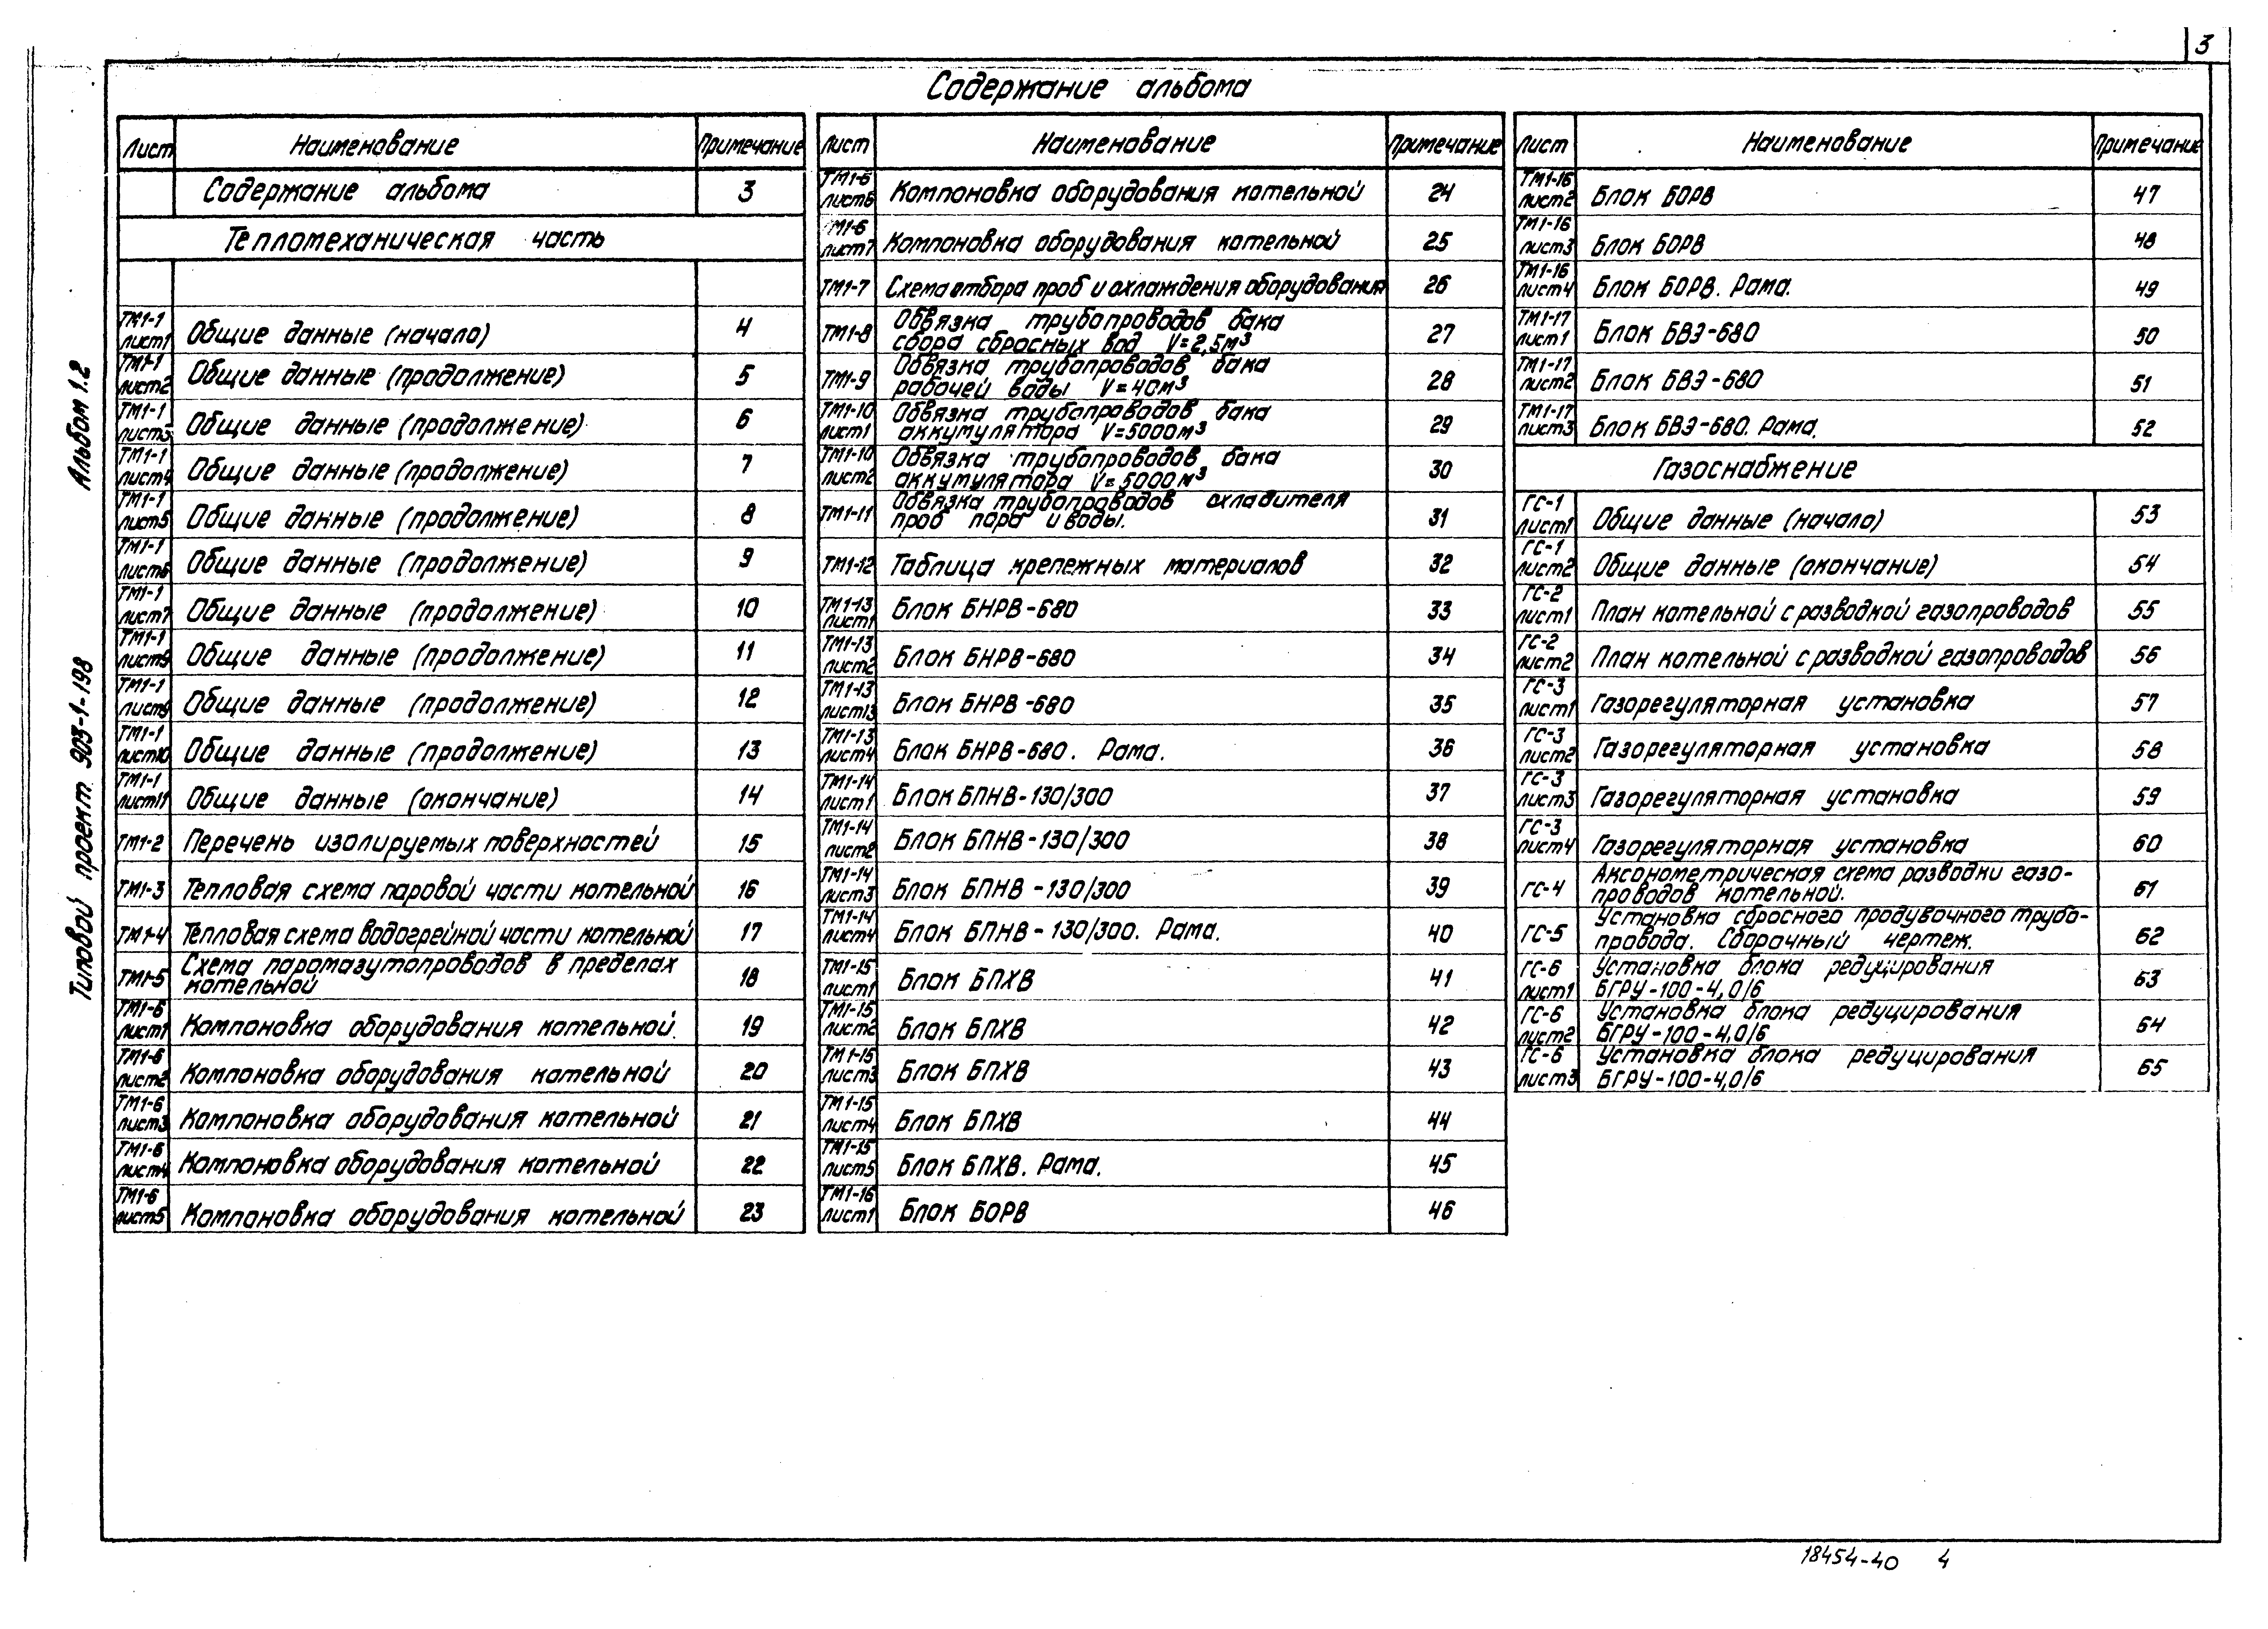 3
Содержание альбома
Альбом 1.2
Типовой проект 903-1-198
Лист Наименование Примечание
Содержание альбома 3
Тепломеханическая часть
ТМ1-1 лист1 Общие данные (начало) 4
ТМ1-1 лист2 Общие данные (продолжение) 5
ТМ1-1 лист3 Общие данные (продолжение) 6
ТМ1-1 лист4 Общие данные (продолжение) 7
ТМ1-1 лист5 Общие данные (продолжение) 8
ТМ1-1 лист6 Общие данные (продолжение) 9
ТМ1-1 лист7 Общие данные (продолжение) 10
ТМ1-1 Общие данные (продолжение) 11
ТМ1-1 лист9 Общие данные (продолжение) 12
ТМ1-1 лист10 Общие данные (продолжение) 13
ТМ1-1 лист11 Общие данные (окончание) 14
ТМ1-2 Перечень изолируемых поверхностей 15
ТМ1-3 Тепловая схема паровой части котельной 16
ТМ1-4 Тепловая схема водогрейной части котельной 17
ТМ1-5 Схема паромазутопроводов в пределах
котельной 18
ТМ1-6 лист1 Компоновка оборудования котельной. 19
ТМ1-6 лист2 Компоновка оборудования котельной 20
ТМ1-6 лист3 Компоновка оборудования котельной 21
ТМ1-6 лист4 Компоновка оборудования котельной 22
ТМ1-6 лист5 Компоновка оборудования котельной 23
Лист Наименование Примечание
ТМ1-6 лист6 Компоновка оборудования котельной 24
ТМ1-6 лист7 Компоновка оборудования котельной 25
ТМ1-7 Схема отбора проб и охлаждения оборудования 26
ТМ1-8 Обвязка трубопроводов бака
сбора сбросных вод V=2,5м³ 27
ТМ1-9 Обвязка трубопроводов бака
рабочей воды V=40м³ 28
ТМ1-10 лист1 Обвязка трубопроводов бака
аккумулятора V=5000м³ 29
ТМ1-10 лист2 Обвязка трубопроводов бака
аккумулятора V=5000м³ 30
ТМ1-11 Обвязка трубопроводов охладителя
проб пара и воды. 31
ТМ1-12 Таблица крепежных материалов 32
ТМ1-13 лист1 Блок БНРВ-680 33
ТМ1-13 лист2 Блок БНРВ-680 34
ТМ1-13 лист13 Блок БНРВ-680 35
ТМ1-13 лист4 Блок БНРВ-680. Рама. 36
ТМ1-14 лист1 Блок БПНВ-130/300 37
ТМ1-14 лист2 Блок БПНВ-130/300 38
ТМ1-14 лист3 Блок БПНВ-130/300 39
ТМ1-14 лист4 Блок БПНВ-130/300. Рама. 40
ТМ1-15 лист1 Блок БПХВ 41
ТМ1-15 лист2 Блок БПХВ 42
ТМ1-15 лист3 Блок БПХВ 43
ТМ1-15 лист4 Блок БПХВ 44
ТМ1-15 лист5 Блок БПХВ. Рама. 45
ТМ1-16 лист1 Блок БОРВ 46
Лист Наименование Примечание
ТМ1-16 лист2 Блок БОРВ 47
ТМ1-16 лист3 Блок БОРВ 48
ТМ1-16 лист4 Блок БОРВ. Рама. 49
ТМ1-17 лист1 Блок БВЭ-680 50
ТМ1-17 лист2 Блок БВЭ-680 51
ТМ1-17 лист3 Блок БВЭ-680. Рама. 52
Газоснабжение
ГС-1 лист1 Общие данные (начало) 53
ГС-1 лист2 Общие данные (окончание) 54
ГС-2 лист1 План котельной с разводкой газопроводов 55
ГС-2 лист2 План котельной с разводкой газопроводов 56
ГС-3 лист1 Газорегуляторная установка 57
ГС-3 лист2 Газорегуляторная установка 58
ГС-3 лист3 Газорегуляторная установка 59
ГС-3 лист4 Газорегуляторная установка 60
ГС-4 Аксонометрическая схема разводки газо-
проводов котельной. 61
ГС-5 Установка сбросного продувочного трубо-
провода. Сборочный чертеж. 62
ГС-6 лист1 Установка блока редуцирования
БГРУ-100-4,0/6 63
ГС-6 лист2 Установка блока редуцирования
БГРУ-100-4,0/6 64
ГС-6 лист3 Установка блока редуцирования
БГРУ-100-4,0/6 65
18454-40 4